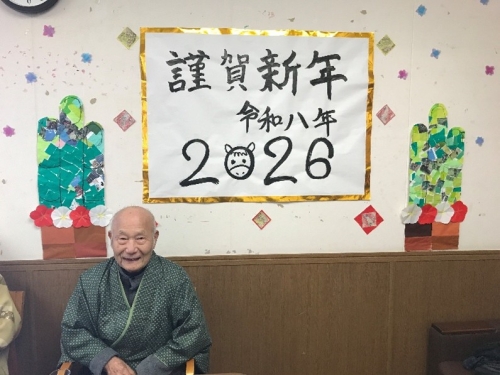 謹賀新年
令和八年
2026